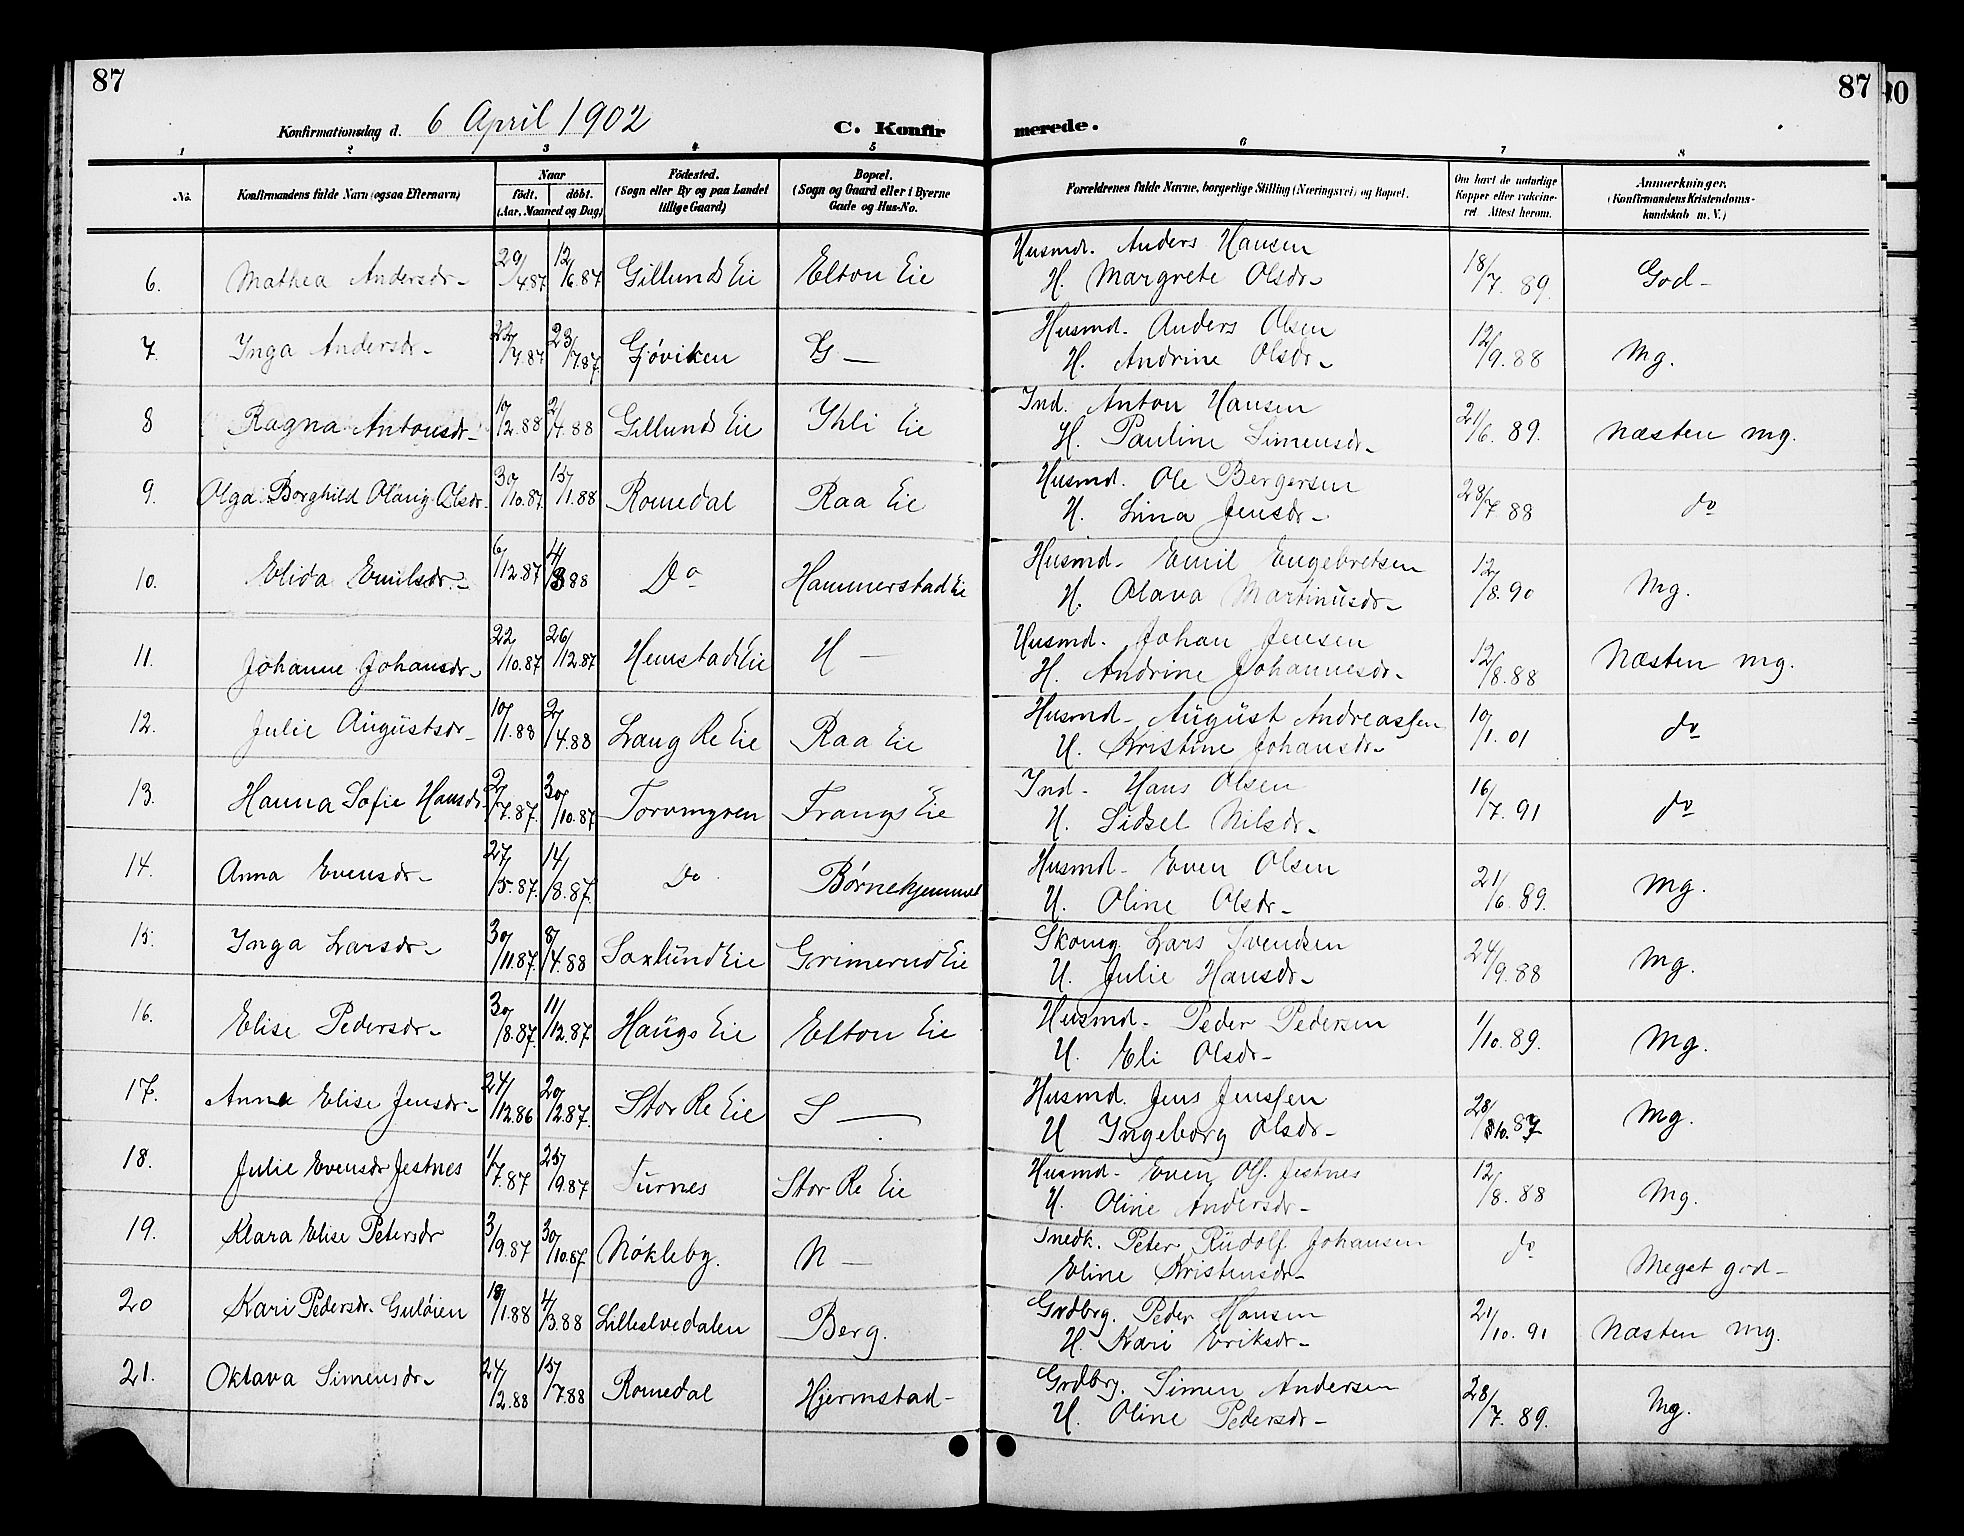 87
87
Konfirmationsdag d. 6 April 1902
C. Konfirmerede.
1 2 3 4 5 6 7 8
No. Konfirmandens fulde Navn (ogsaa Efternavn) Naar født, døbt. (Aar, Maaned og Dag) Fødested. (Sogn eller By og paa Landet tillige Gaard) Bopæl. (Sogn og Gaard eller i Byerne Gade og Hus-No. Forældrenes fulde Navne, borgerlige Stilling (Næringsvei) og Bopæl. Om havt de naturlige Kopper eller vaccineret Attest herom. Anmærkninger. (Konfirmandens Kristendomskundskab m. V.)
6. Mathea Andersdr- 29/4.87 12/6.87 Gillunds Eie Elton Eie Husmd. Anders Hansen 18/7 89. God-
H. Margrete Olsdr-
7. Inga Andersdr- 22/7.87 23/7.87. Gjøviken G — Husmd. Anders Olsen 12/9.88 Mg.
H. Andrine Olsdr-
8 Ragna Antonsdr- 10/2.88 2/4.88 Gillunds Eie Ihli Eie Ind. Anton Hansen 21/6.89. Næsten mg.
H. Pauline Simensdr-
9. Olga Borghild Olaug Olsdr. 30/10.87 15/1.88 Romedal Raa Eie Husmd. Ole Bergersen 28/7 88 do
H. Lina Jensdr-
10. Elida Emilsdr- 6/12.87 4/3 88 Do Hammerstad Eie Husmd- Emil Engebretsen 12/8.90 Mg.
H. Olava Martinusdr-
11. Johanne Johansdr- 22/10.87 26/12.87 Hemstad Eie H — Husmd. Johan Jensen 12/8.88 Næsten mg.
H. Andrine Johannesdr-
12. Julie Augustsdr- 10/1.88 2/4.88 Lang Re Eie Raa Eie Husmd- August Andreassen 10/1.01 do
H. Kristine Johansdr-
13. Hanna Sofie Hansdr 2/7.87. 30/10.87 Torvmyren Frangs Eie Ind- Hans Olsen 16/7.91 do
H. Sidsel Nilsdr-
14. Anna Evensdr- 27/5.87. 14/8.87. Do Børnehjemmet Husmd- Even Olsen 21/6.89. Mg.
H. Oline Olsdr-
15. Inga Larsdr- 30/11.87. 8/4.88 Saxlund Eie Grimerud Eie Skomg. Lars Svendsen 24/9.88 Mg.
H. Julie Hansdr-
16. Elise Pedersdr- 30/8.87. 11/12.87 Haugs Eie Elton Eie Husmd- Peder Pedersen 1/10.89. Mg.
H. Eli Olsdr-
17. Anna Elise Jensdr- 24/12.86 20/2.87. Stor Re Eie S — Husmd. Jens Jenssen 28/10.87 Mg.
H Ingeborg Olsdr-
18. Julie Evensdr Jestnes 1/7.87 25/9.87 Furnes Stor Re Eie Husmd- Even Ols. Jestnes 12/8.88 Mg.
H. Oline Andersdr-
19. Klara Elise Petersdr 3/9.87 30/10.87 Nøkleby. N — Snedk. Peter Rudolf Johansen do Meget god-
Eline Kristensdr-
20 Kari Pedersdr. Guløien 18/1.88 4/3.88 Lilleelvedalen Berg. Grdbrg. Peder Hansen 21/10.91 Næsten mg.
H. Kari Eriksdr-
21. Oktava Simensdr- 24/2.88 15/7.88 Romedal Hjermstad- Grdbrg. Simen Andersen 28/7.89. Mg.
H. Oline Pedersdr-